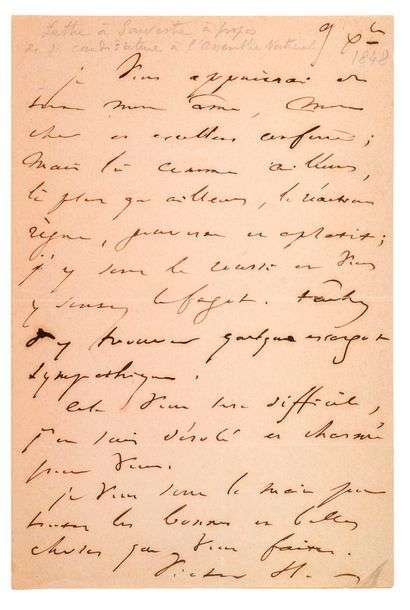 Lettre à Souvestre à propos
de sa candidature à l'Assemblée Nationale
9 Xbre
1848
je vous appuierai de
toute mon âme, mon
cher et excellent confrère ;
mais là comme ailleurs,
là plus qu'ailleurs, la réaction
règne, gouverne et aplatit ;
j'y sens le roussi et vous
y sentez le fagot. tâchez
d'y trouver quelque
sympathique.
Cela vous sera difficile,
j'en suis désolé et charmé
pour vous.
je vous serre la main pour
toutes les bonnes et belles
choses que vous faites.
Victor H.